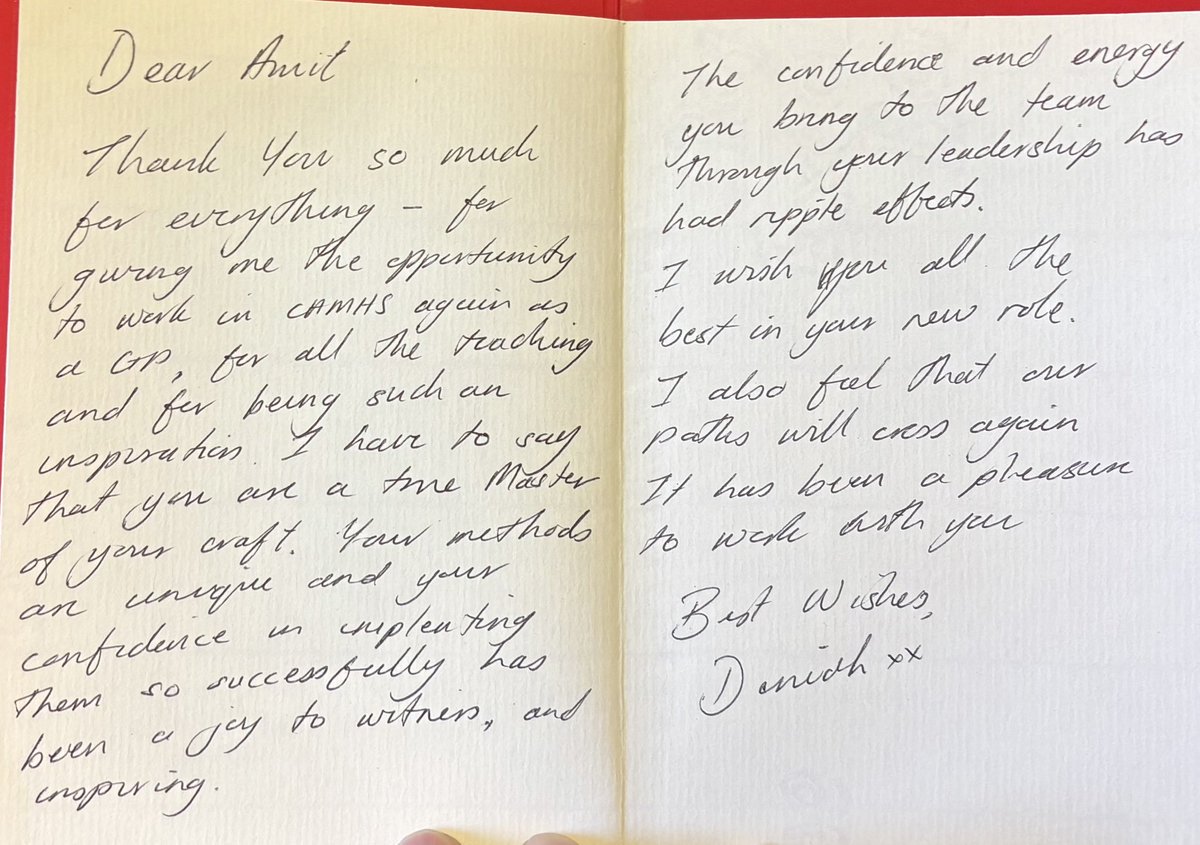 Dear Amit
Thank You so much
for everything - for
giving me the opportunity
to work in CAMHS again as
a GP, for all the teaching
and for being such an
inspiration. I have to say
that you are a true Master
of your craft. Your methods
are unique and your
confidence in implenting
them so successfully has
been a joy to witness, and
inspiring.
The confidence and energy
you bring to the team
through your leadership has
had ripple effects.
I wish you all the
best in your new role.
I also feel that our
paths will cross again
It has been a pleasure
to work with you
Best Wishes,
Danish xx